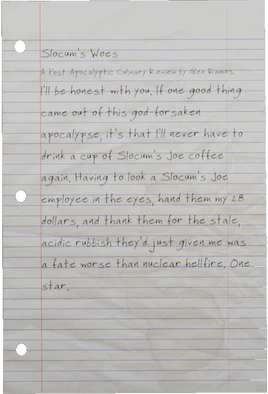 Slocum's Woes
A Post-Apocalyptic Culinary Review by
I'll be honest with you. If one good thing
came out of this god forsaken
apocalypse, it's that I'll never have to
drink a cup of Slocum's Joe coffee
again. Having to look a Slocum's Joe
employee in the eyes, hand them my 28
dollars, and thank them for the stale,
acidic rubbish they'd just given me was
a fate worse than nuclear hellfire. One
star.